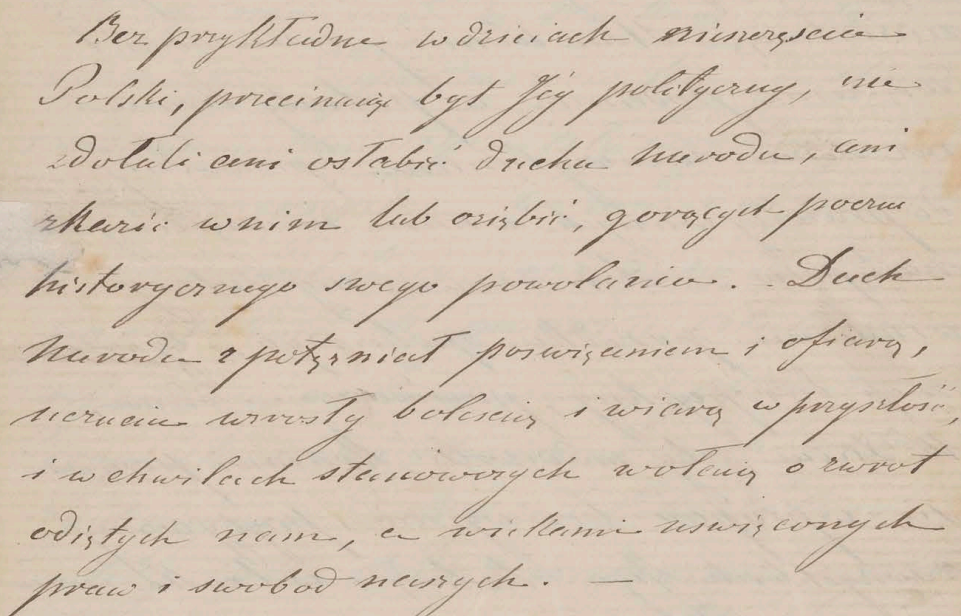 Bez przykładne w dzieiach nieszczęscie
Polski, przecinaiąc byt Jéy polityczny, nie
zdołali ani osłabić ducha narodu, ani
skazić w nim lub oziębić, gorących poczuć
historycznego swego powołania. Duch
narodu spotężniał poswięceniem i ofiarą,
uczucia wzrosły bolescią i wiarą w przyszłość,
i w chwilach stanowczych wołaią o zwrot
odiętych nam, a wiekami uswięconych
praw i swobod naszych. —